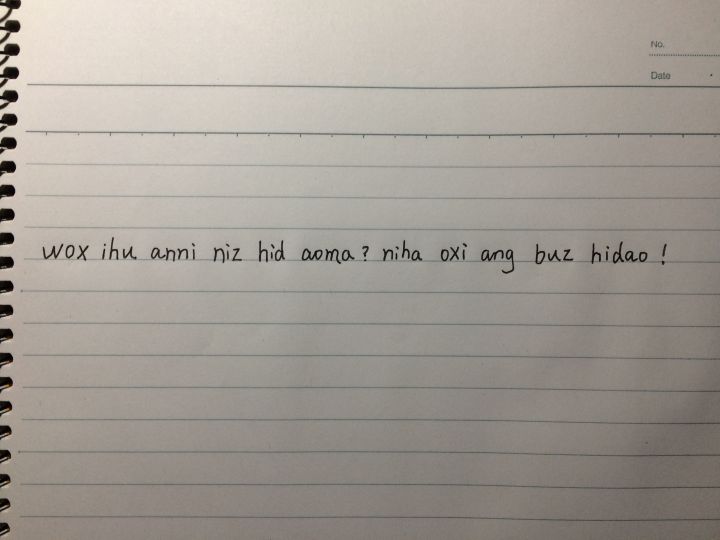 No.
Date
wox ihu anni niz hid aoma? niha oxi ang buz hidao!